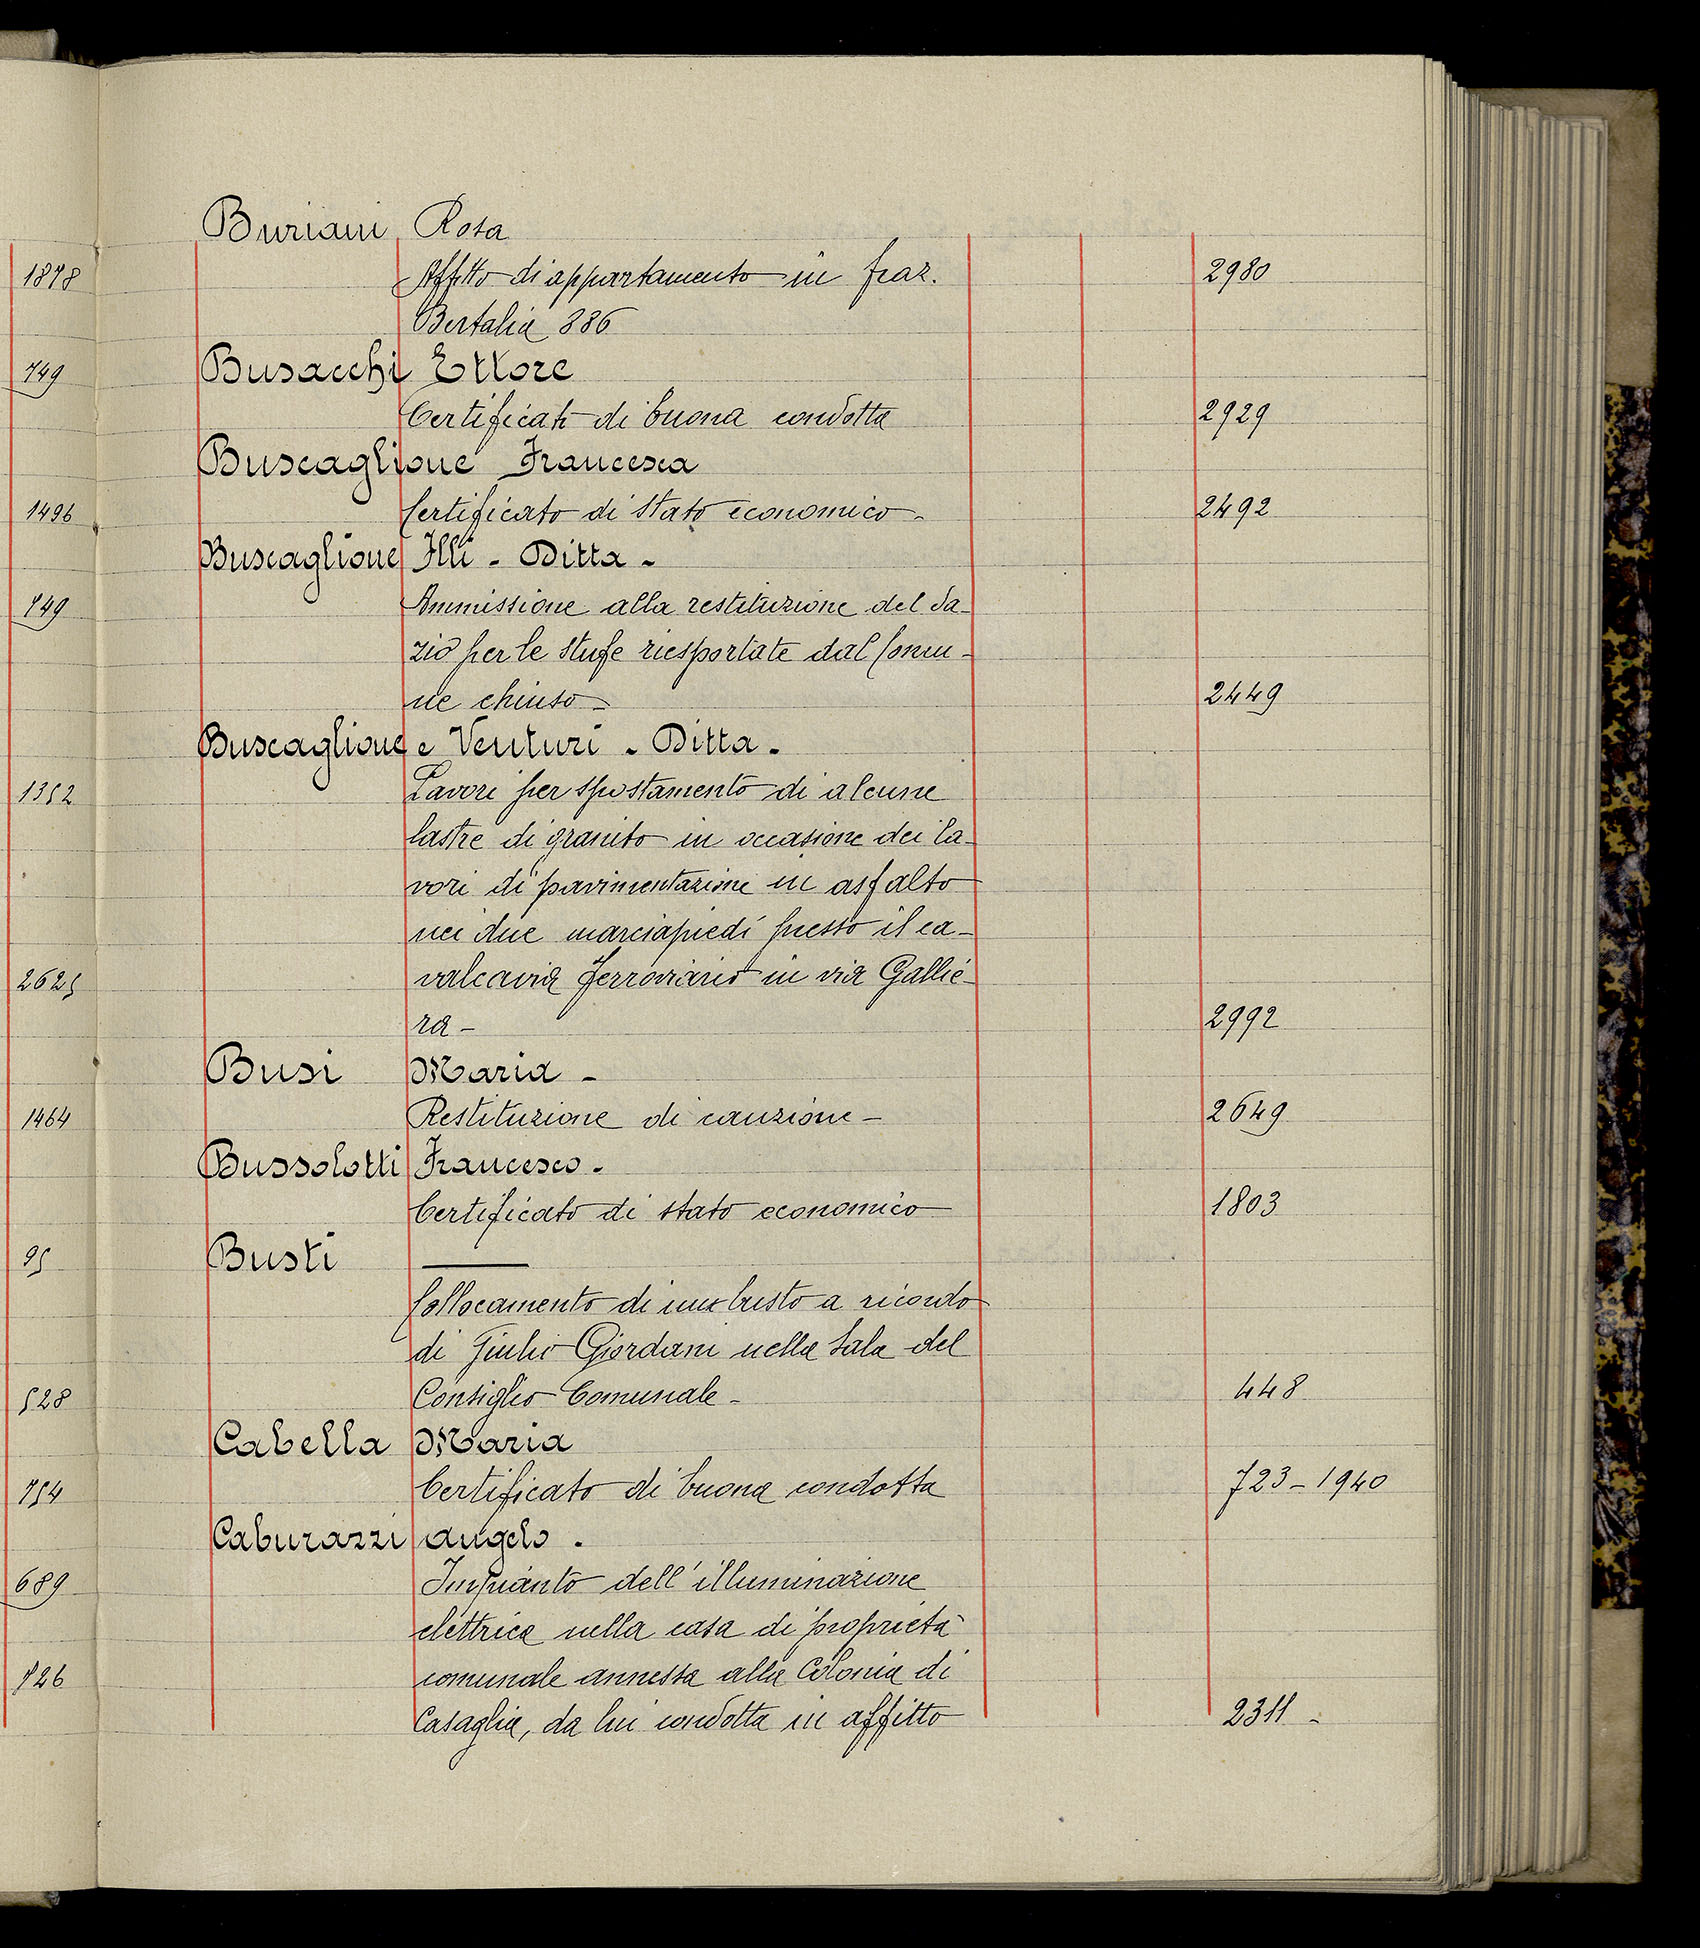 Buriani Rosa
1878
Affitto di appartamento in fraz. 2980
Bertalia 386
749
Busacchi Ettore
Certificati di buona condotta 2929
Buscaglione Francesca
1496
Certificato di stato economico - 2492
Buscaglione Flli - Ditta -
749
Ammissione alla restituzione del da-
zio per le stufe riesportate dal Comu-
ne chiuso - 2449
Buscaglione e Venturi - Ditta -
1352
Lavori per spostamento di alcune
lastre di granito in occasione dei la-
vori di pavimentazione in asfalto
nei due marciapiedi presso il ca-
2625
valcavia ferroviario in via Gallie-
ra - 2992
Busi Maria -
1464
Restituzione di cauzione - 2649
Bussolotti Francesco -
Certificato di stato economico 1803
95
Busti
Collocamento di un busto a ricordo
di Giulio Giordani nella Sala del
528
Consiglio Comunale - 448
Cabella Maria
754
Certificato di buona condotta 723 - 1940
Caburazzi Angelo .
689
Impianto dell'illuminazione
elettrica nella casa di proprietà
726
comunale annessa alla Colonia di
Casaglia, da lui condotta in affitto 2311 -